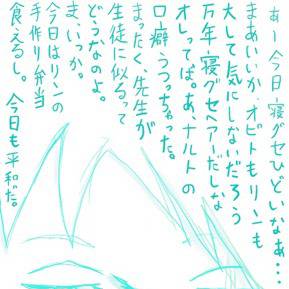 あー今日寝グセひどいなぁ…
まあいいか、オビトもリンも
大して気にしないだろう
万年寝グセヘアーだしな
オレってば。あ、ナルトの
口癖うつっちゃった。
まったく、先生が
生徒に似るって
どうなのよ。
ま、いっか。
今日はリンの
手作り弁当
食えるし。今日も平和だ。